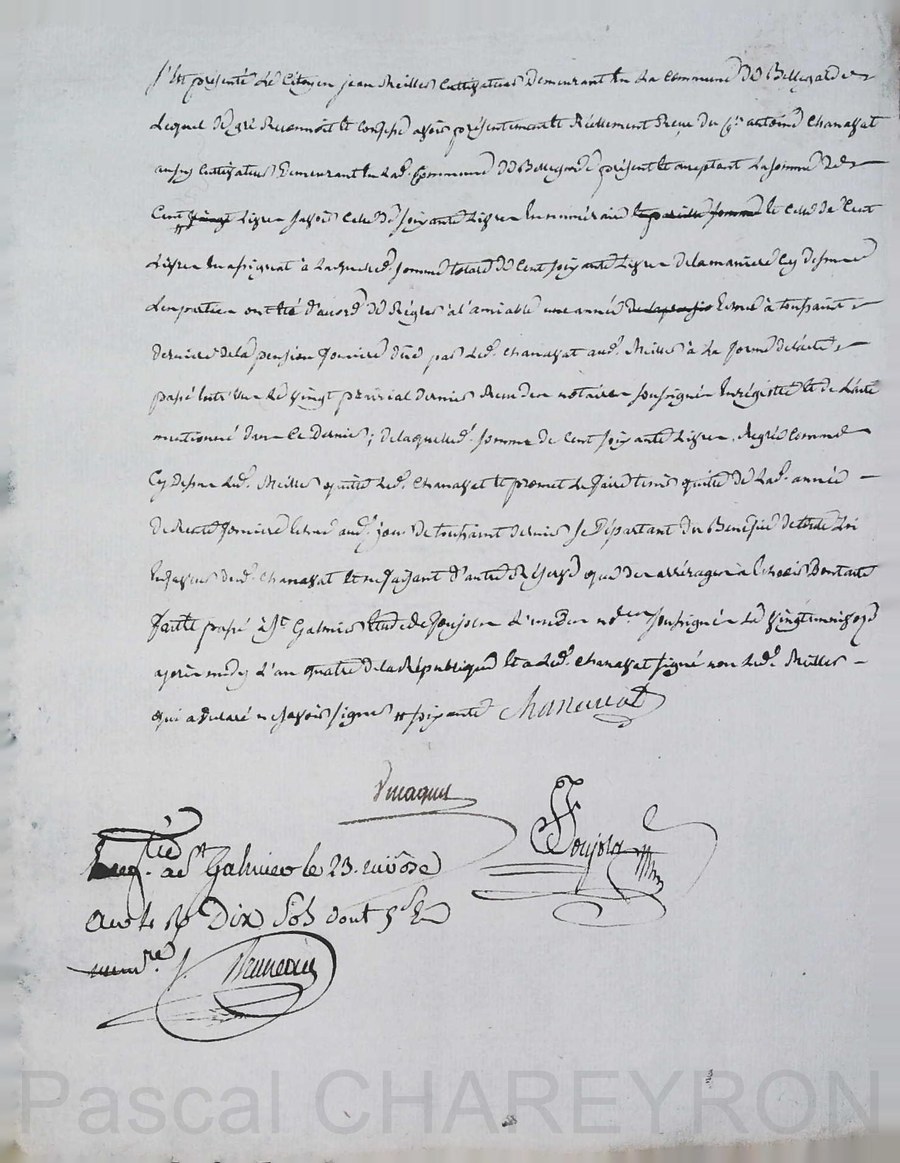 S'est présenté le Citoyen jean Meiller Cultivateur demeurant en la Commune de Bellegarde
Lequel de gré Reconnoit et Confesse avoir présentement et Réellement Receu du Cen antoine Chanavat
aussy Cultivateur demeurant en lad. Commune de Bellegarde présent et acceptant la somme de
Cent vingt Livres savoir Celle de soixante Livres en numéraire et pareille somme et Celle de Cent
Livres en assignat à laquelle somme totale de Cent soixante Livres de la maniere Cy dessus
les parties ont été d'accord de Régler à l'amiable une année de la pensio Echue à toussaint
derniere de la pension fonciere düe par led. Chanavat aud. Meiller à la forme de l'acte
passé entre Eux le vingt prairial dernier Receu des notaires soussignés Enrégistré et de l'acte
mentionné dans Ce dernier; de laquelle somme de Cent soixante Livres, Reglée Comme
Cy dessus led. Meiller quitte led. Chanavat et promet le faire tenir quitte de lad. année
de Rente fonciere Echue aud. jour de toussaint dernier se Départant du Benefice de toute Loi
En faveur dud. Chanavat et ne faisant d'autre Réserve que des arrérages à Echoir Dont acte
fait et passé à St Galmier Etude de Joujola L'un des nores soussignés le vingt un nivose
après midy L'an quatre de la République Et a led. Chanavat signé non led. Meiller
qui a declaré ne savoir signer # soixante Chanavat
Joujola
Enreg. à St Galmier le 23. nivôse
an 4e Rs Dix Sols dont 5s En
numre.
Pascal CHAREYRON